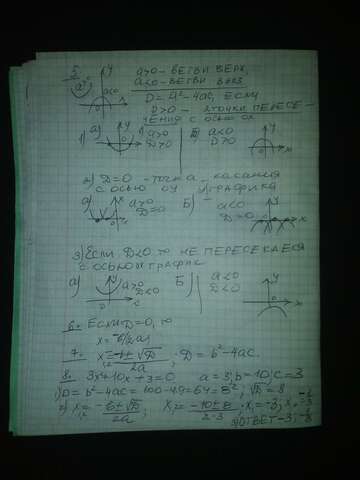 5
a>0 - ВЕТВИ ВЕРХ,
a<0 - ВЕТВИ ВНИЗ
D = в²-4ac, ЕСЛИ
D>0 - 2 точки ПЕРЕСЕ-
ЧЕНИЯ С ОСЬЮ OX
1) а) a>0 D>0 Б) a<0 D>0
2) D=0 - точка касания
с осью графика
а) a>0 D=0 Б) a<0 D=0
3) Если D<0 то НЕ ПЕРЕСЕКАЕСЯ
с осью график
а) a>0 D<0 Б) a<0 D<0
6. Если D=0, то
x = -в/2a
7. x1,2 = -в±√D / 2a ; D = b²-4ac.
8. 3x²+10x+3=0 a=3; b=10; c=3
1) D = b²-4ac = 100-4·9=64=8²; √D=8
2) x1,2 = -в±√D / 2a ; x1,2 = -10±8 / 2·3 ; x1=-3; x2=-1/3
ОТВЕТ -3; -1/3